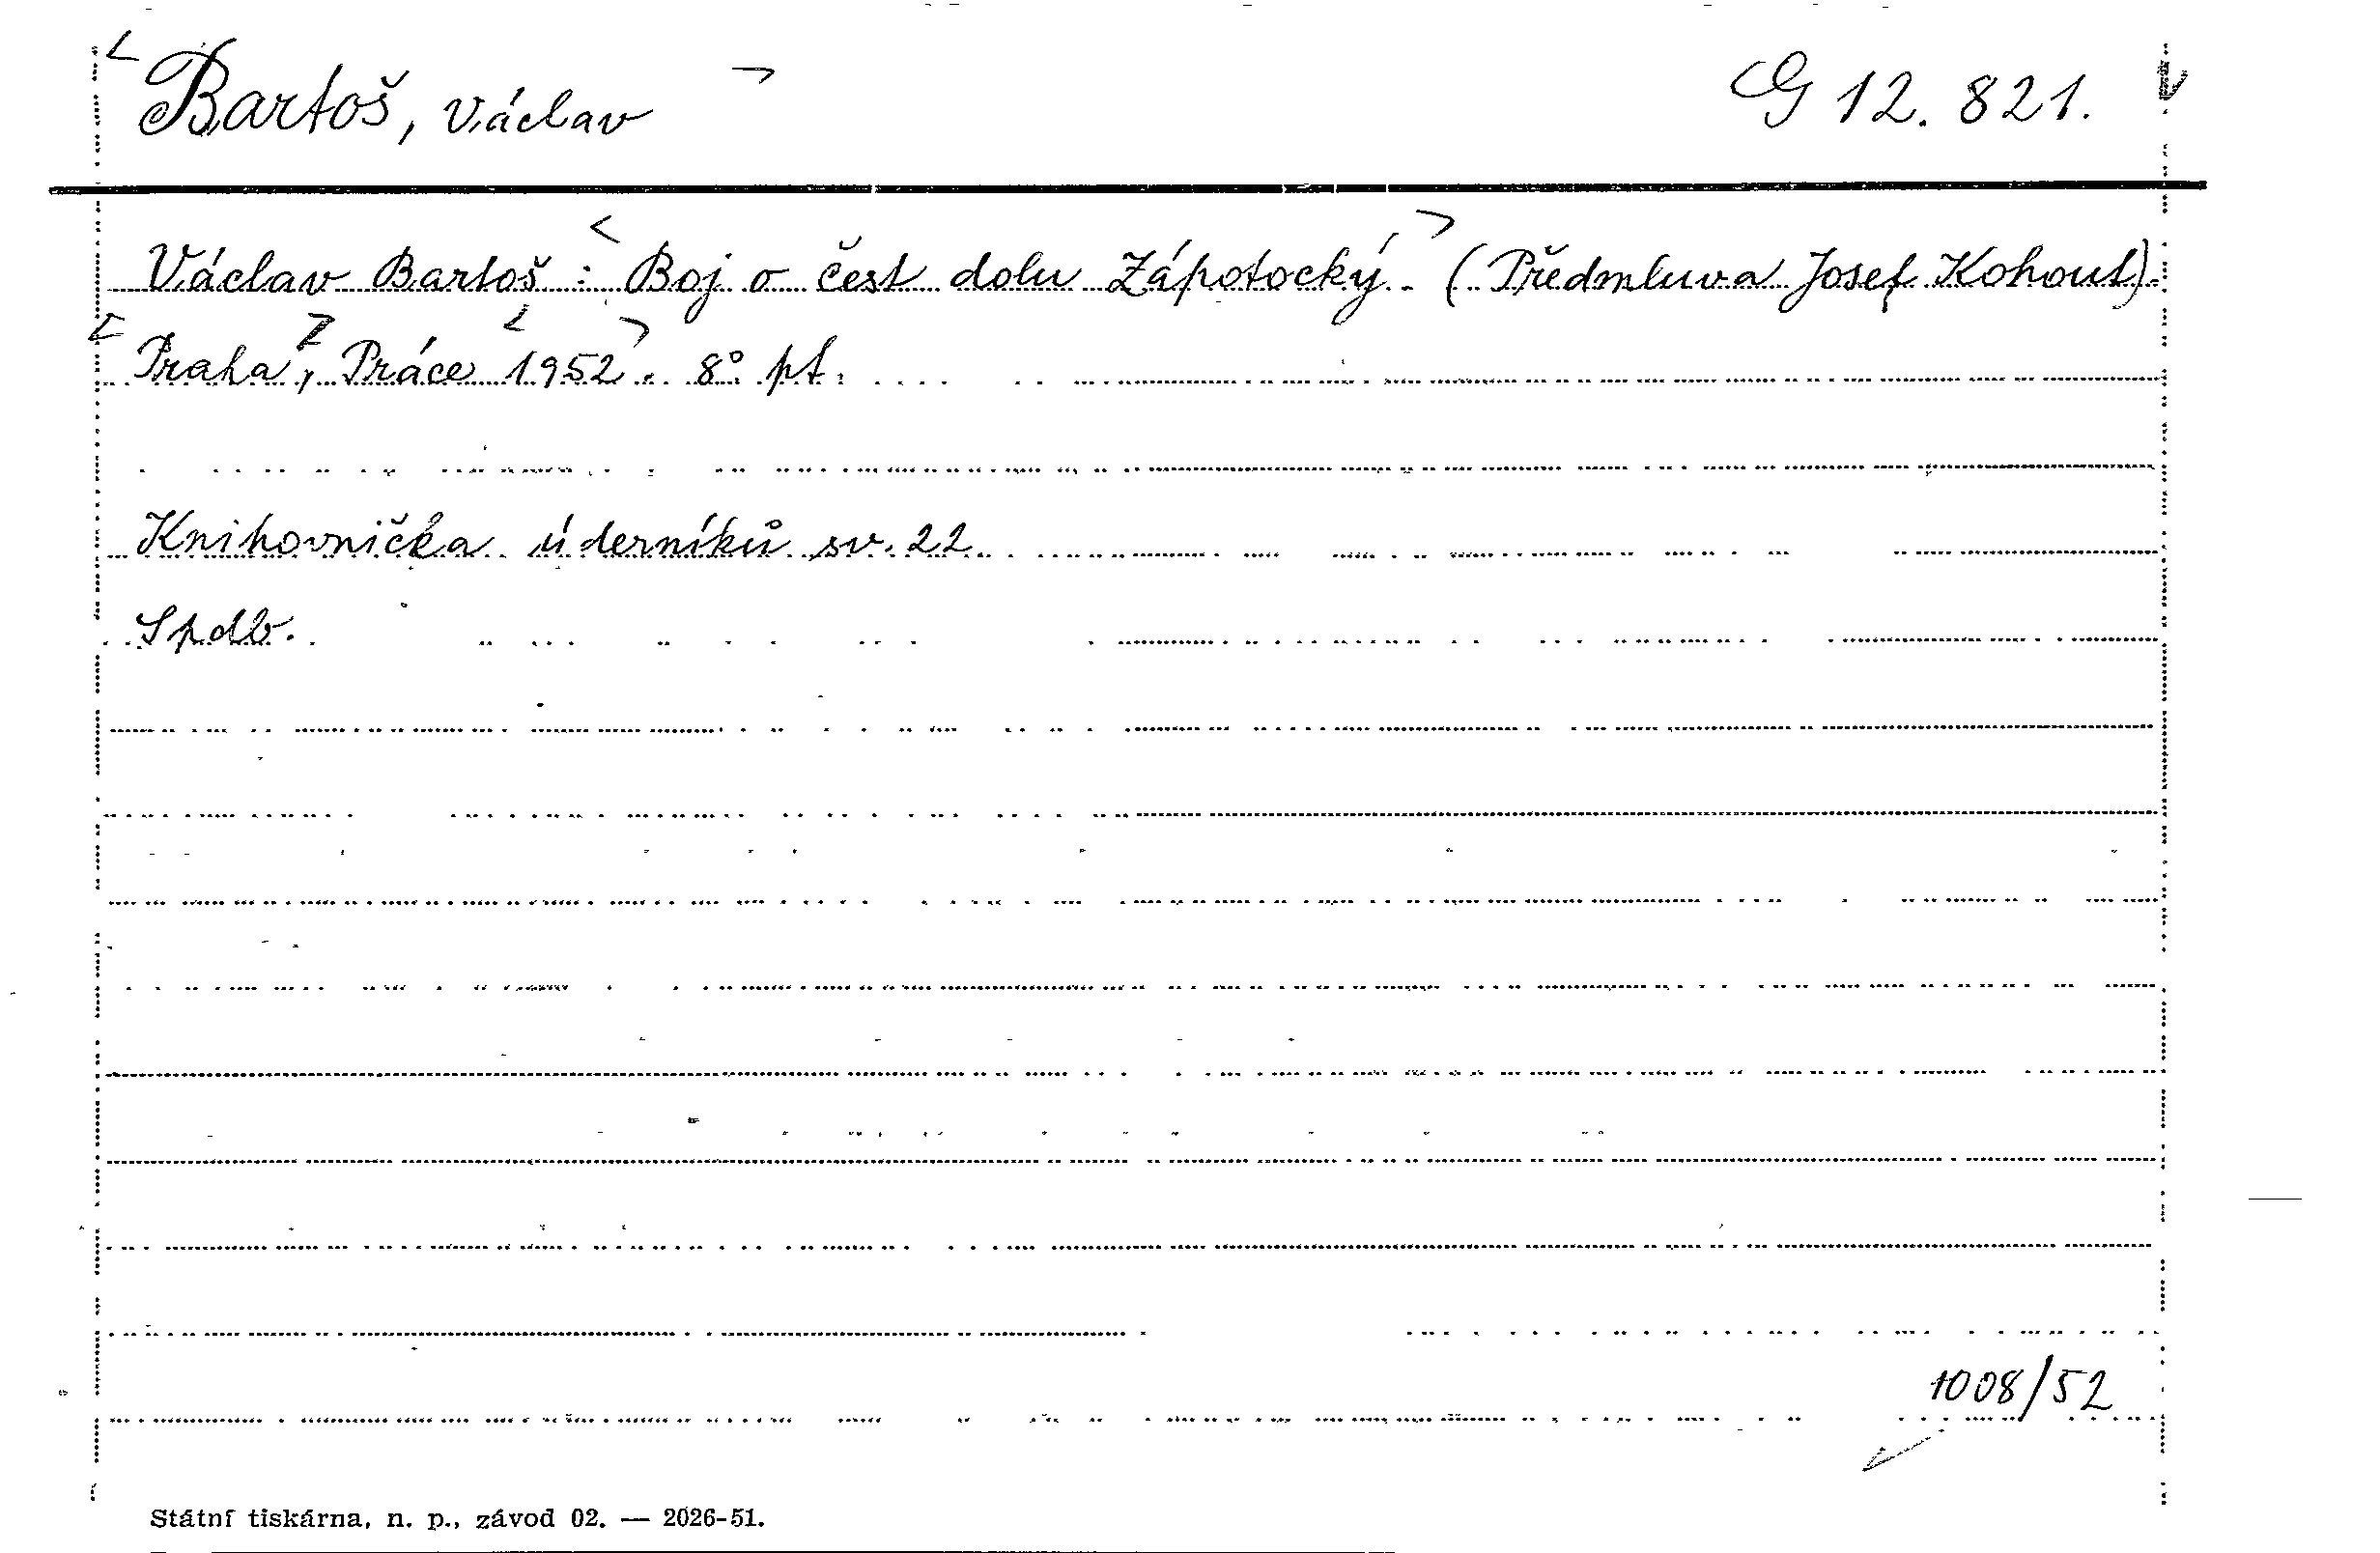 Bartoš, Václav G 12. 821.
Václav Bartoš : Boj o čest dolu Zápotocký. (Předmluva Josef Kohout).
Praha, Práce 1952. 8° pt.
Knihovnička úderníků sv. 22
Spdb.
1008/52
Státní tiskárna, n. p., závod 02. — 2026-51.